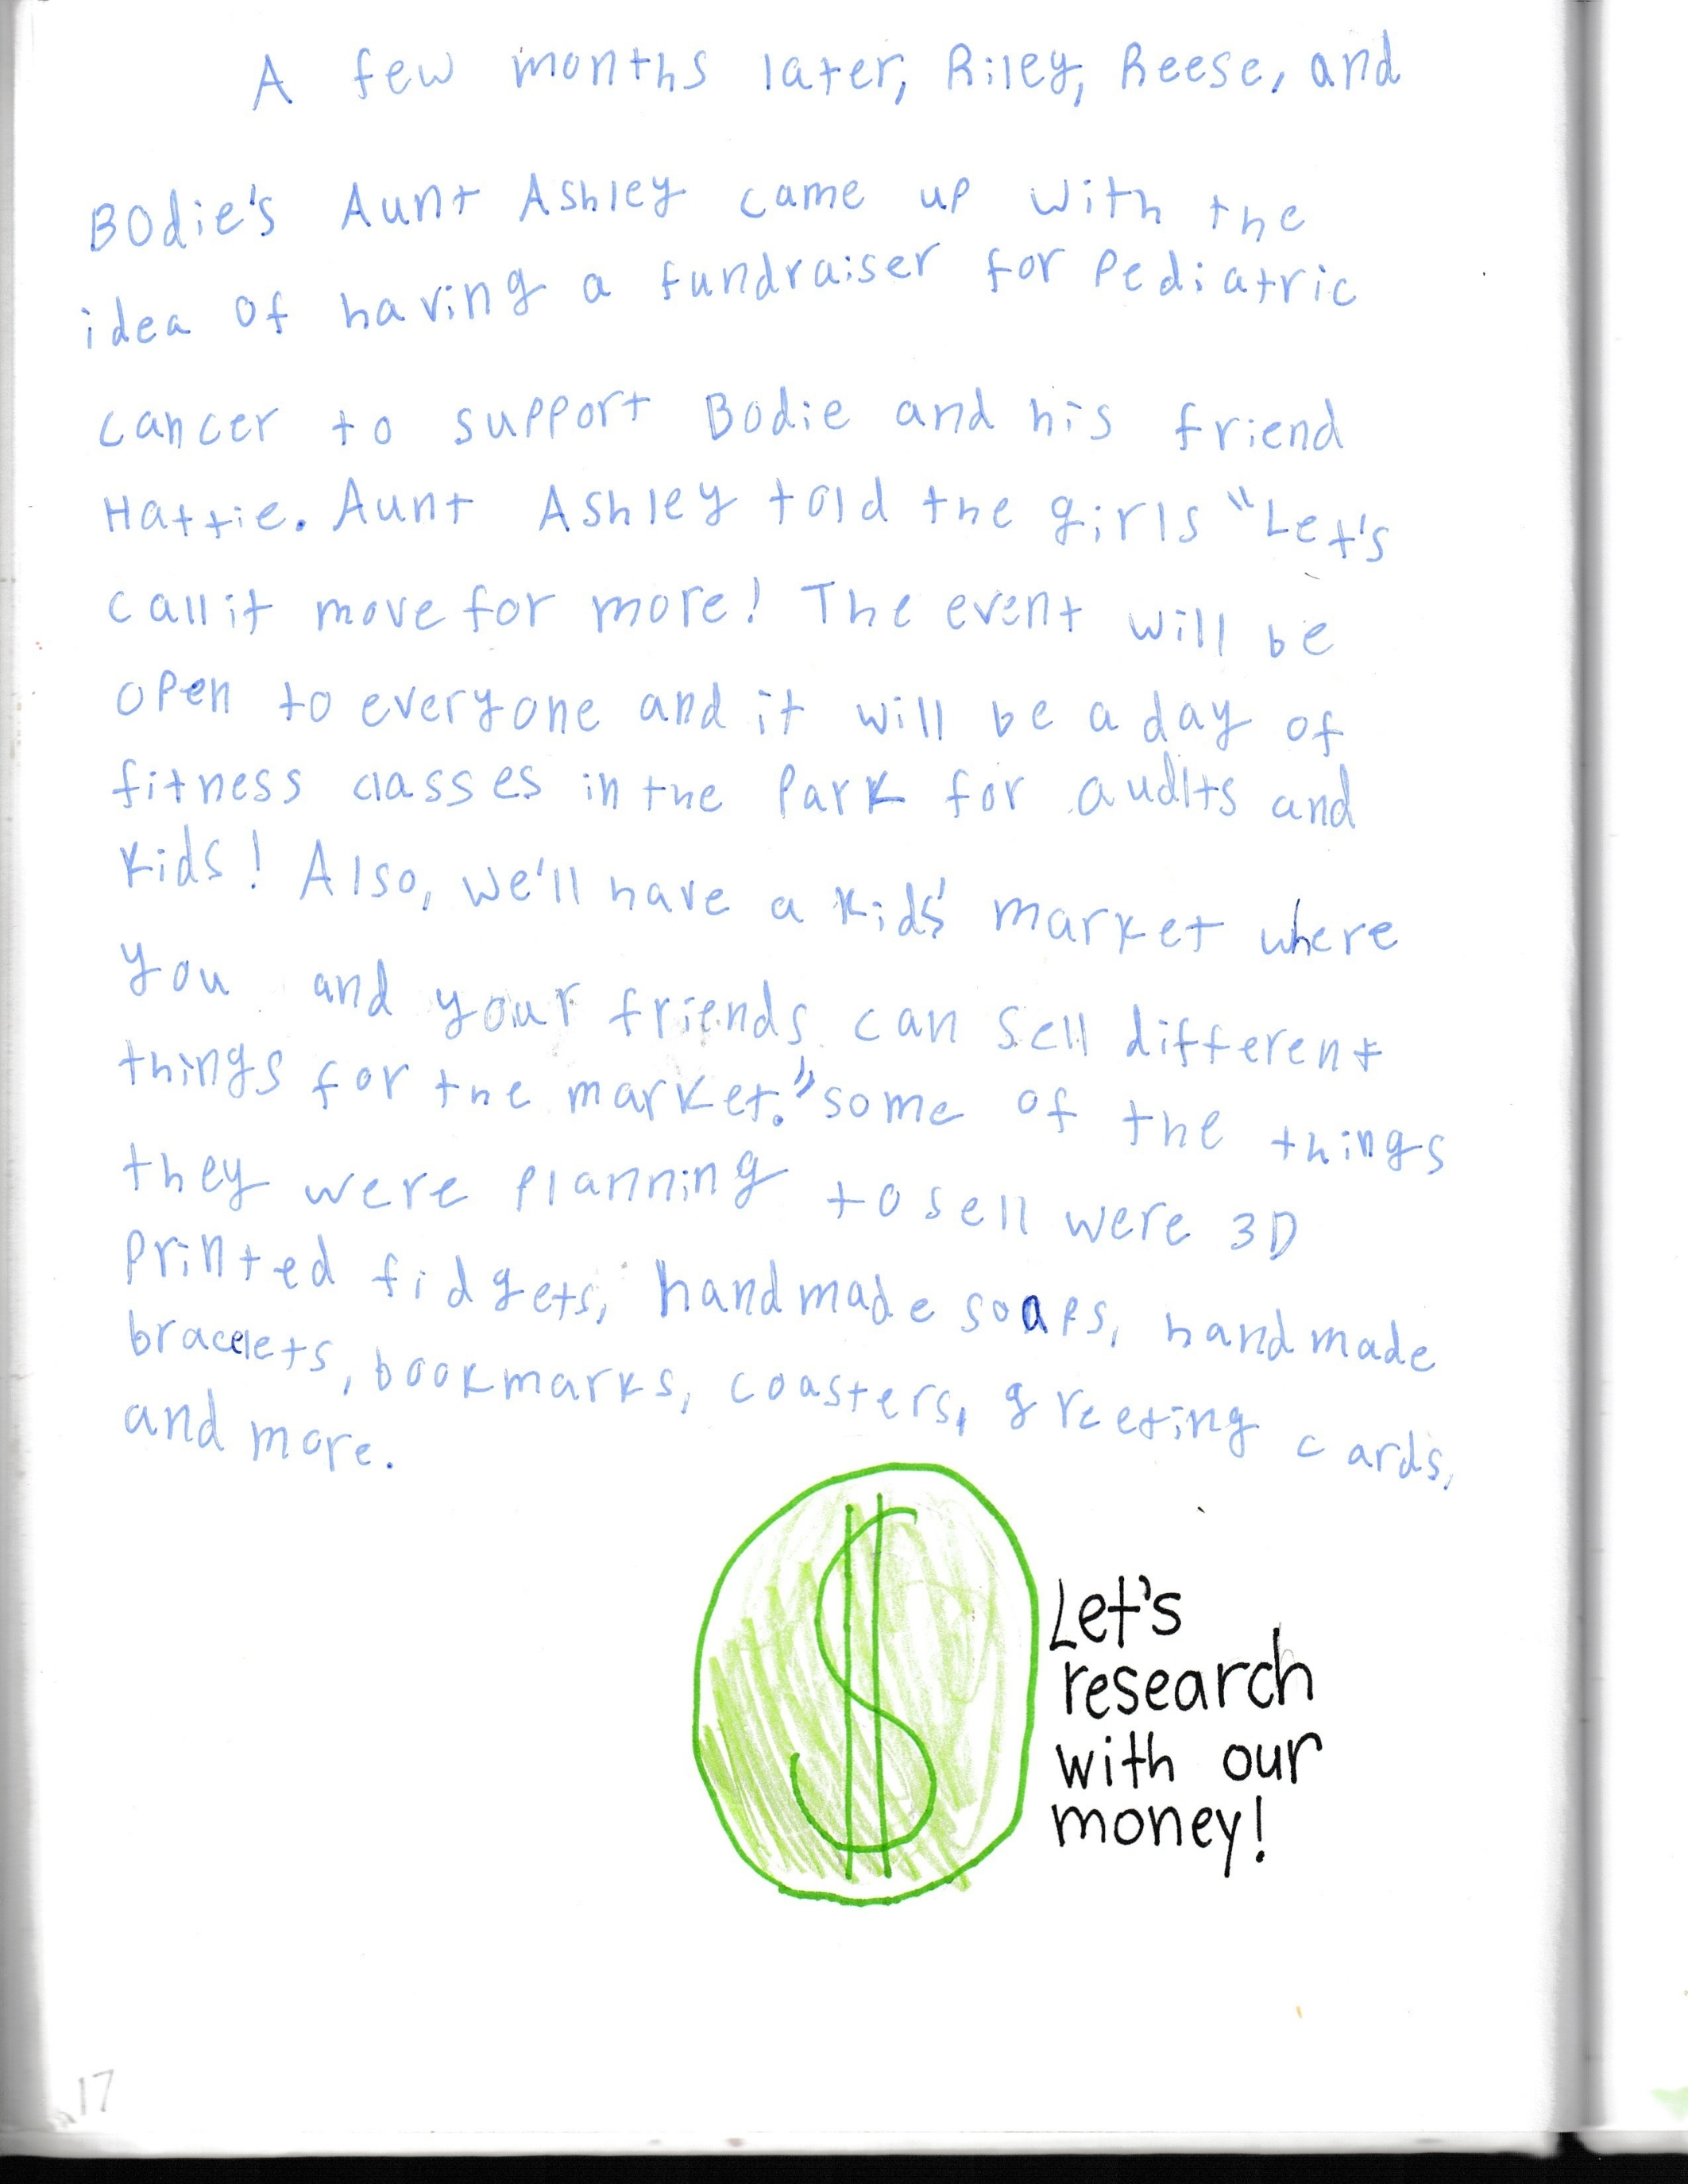 A few months later, Riley, Reese, and
Bodie's Aunt Ashley came up with the
idea of having a fundraiser for Pediatric
cancer to support Bodie and his friend
Hattie. Aunt Ashley told the girls "Let's
call it move for more! The event will be
open to everyone and it will be a day of
fitness classes in the Park for audlts and
kids! Also, we'll have a kids' market where
you and your friends can sell different
things for the market." some of the things
they were planning to sell were 3D
printed fidgets, handmade soaps, handmade
bracelets, bookmarks, coasters, greeting cards,
and more.
Let's
research
with our
money!
17